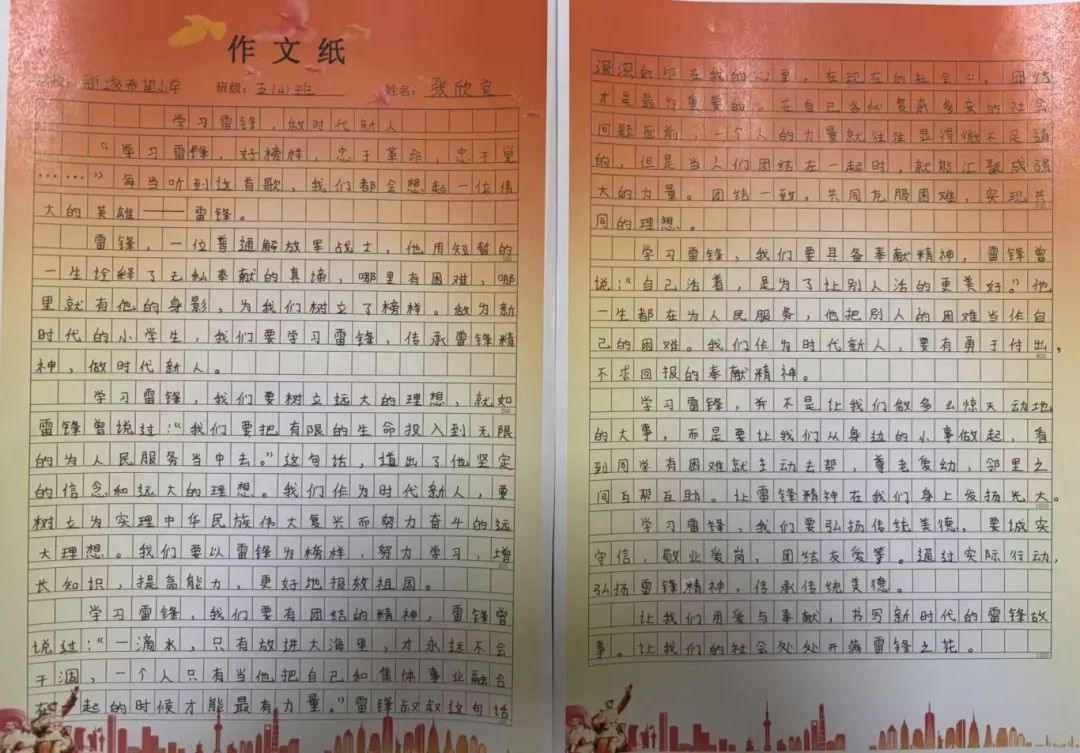 作文纸
学校：新源希望小学 班级：五（4）班 姓名：张欣宜
学习雷锋，做时代新人
“学习雷锋，好榜样，忠于革命，忠于党
……”每当听到这首歌，我们都会想起一位伟
大的英雄——雷锋。
雷锋，一位普通解放军战士，他用短暂的
一生诠释了无私奉献的真谛，哪里有困难，哪
里就有他的身影，为我们树立了榜样。做为新
时代的小学生，我们要学习雷锋，传承雷锋精
神，做时代新人。
学习雷锋，我们要树立远大的理想，就如
雷锋曾说过：“我们要把有限的生命投入到无限
的为人民服务当中去。”这句话，道出了他坚定
的信念和远大的理想。我们作为时代新人，更
树立为实理中华民族伟大复兴而努力奋斗的远
大理想。我们要以雷锋为榜样，努力学习，增
长知识，提高能力，更好地报效祖国。
学习雷锋，我们要有团结的精神，雷锋曾
说过：“一滴水，只有放进大海里，才永远不会
干涸，一个人只有当他把自己和集体事业融合
在一起的时候才能最有力量。”雷锋叔叔这句话
深深的印在我的心里，在现在的社会中，团结
才是最为重要的。在自己各种复杂多变的社会
问题面前，一个人的力量就往往显得微不足道
的，但是当人们团结在一起时，就能汇聚成强
大的力量。团结一致，共同克服困难，实现共
同的理想。
学习雷锋，我们要具备奉献精神，雷锋曾
说：“自己活着，是为了让别人活的更美好。”他
一生都在为人民服务，他把别人的困难当作自
己的困难。我们作为时代新人，要有勇于付出，
不求回报的奉献精神。
学习雷锋，并不是让我们做多么惊天动地
的大事，而是要让我们从身边的小事做起，看
到同学有困难就主动去帮，尊老爱幼，邻里之
间互帮互助。让雷锋精神在我们身上发扬光大。
学习雷锋，我们要弘扬传统美德，要诚实
守信，敬业爱岗，团结友爱等。通过实际行动，
弘扬雷锋精神，传承传统美德。
让我们用爱与奉献，书写新时代的雷锋故
事。让我们的社会处处开满雷锋之花。